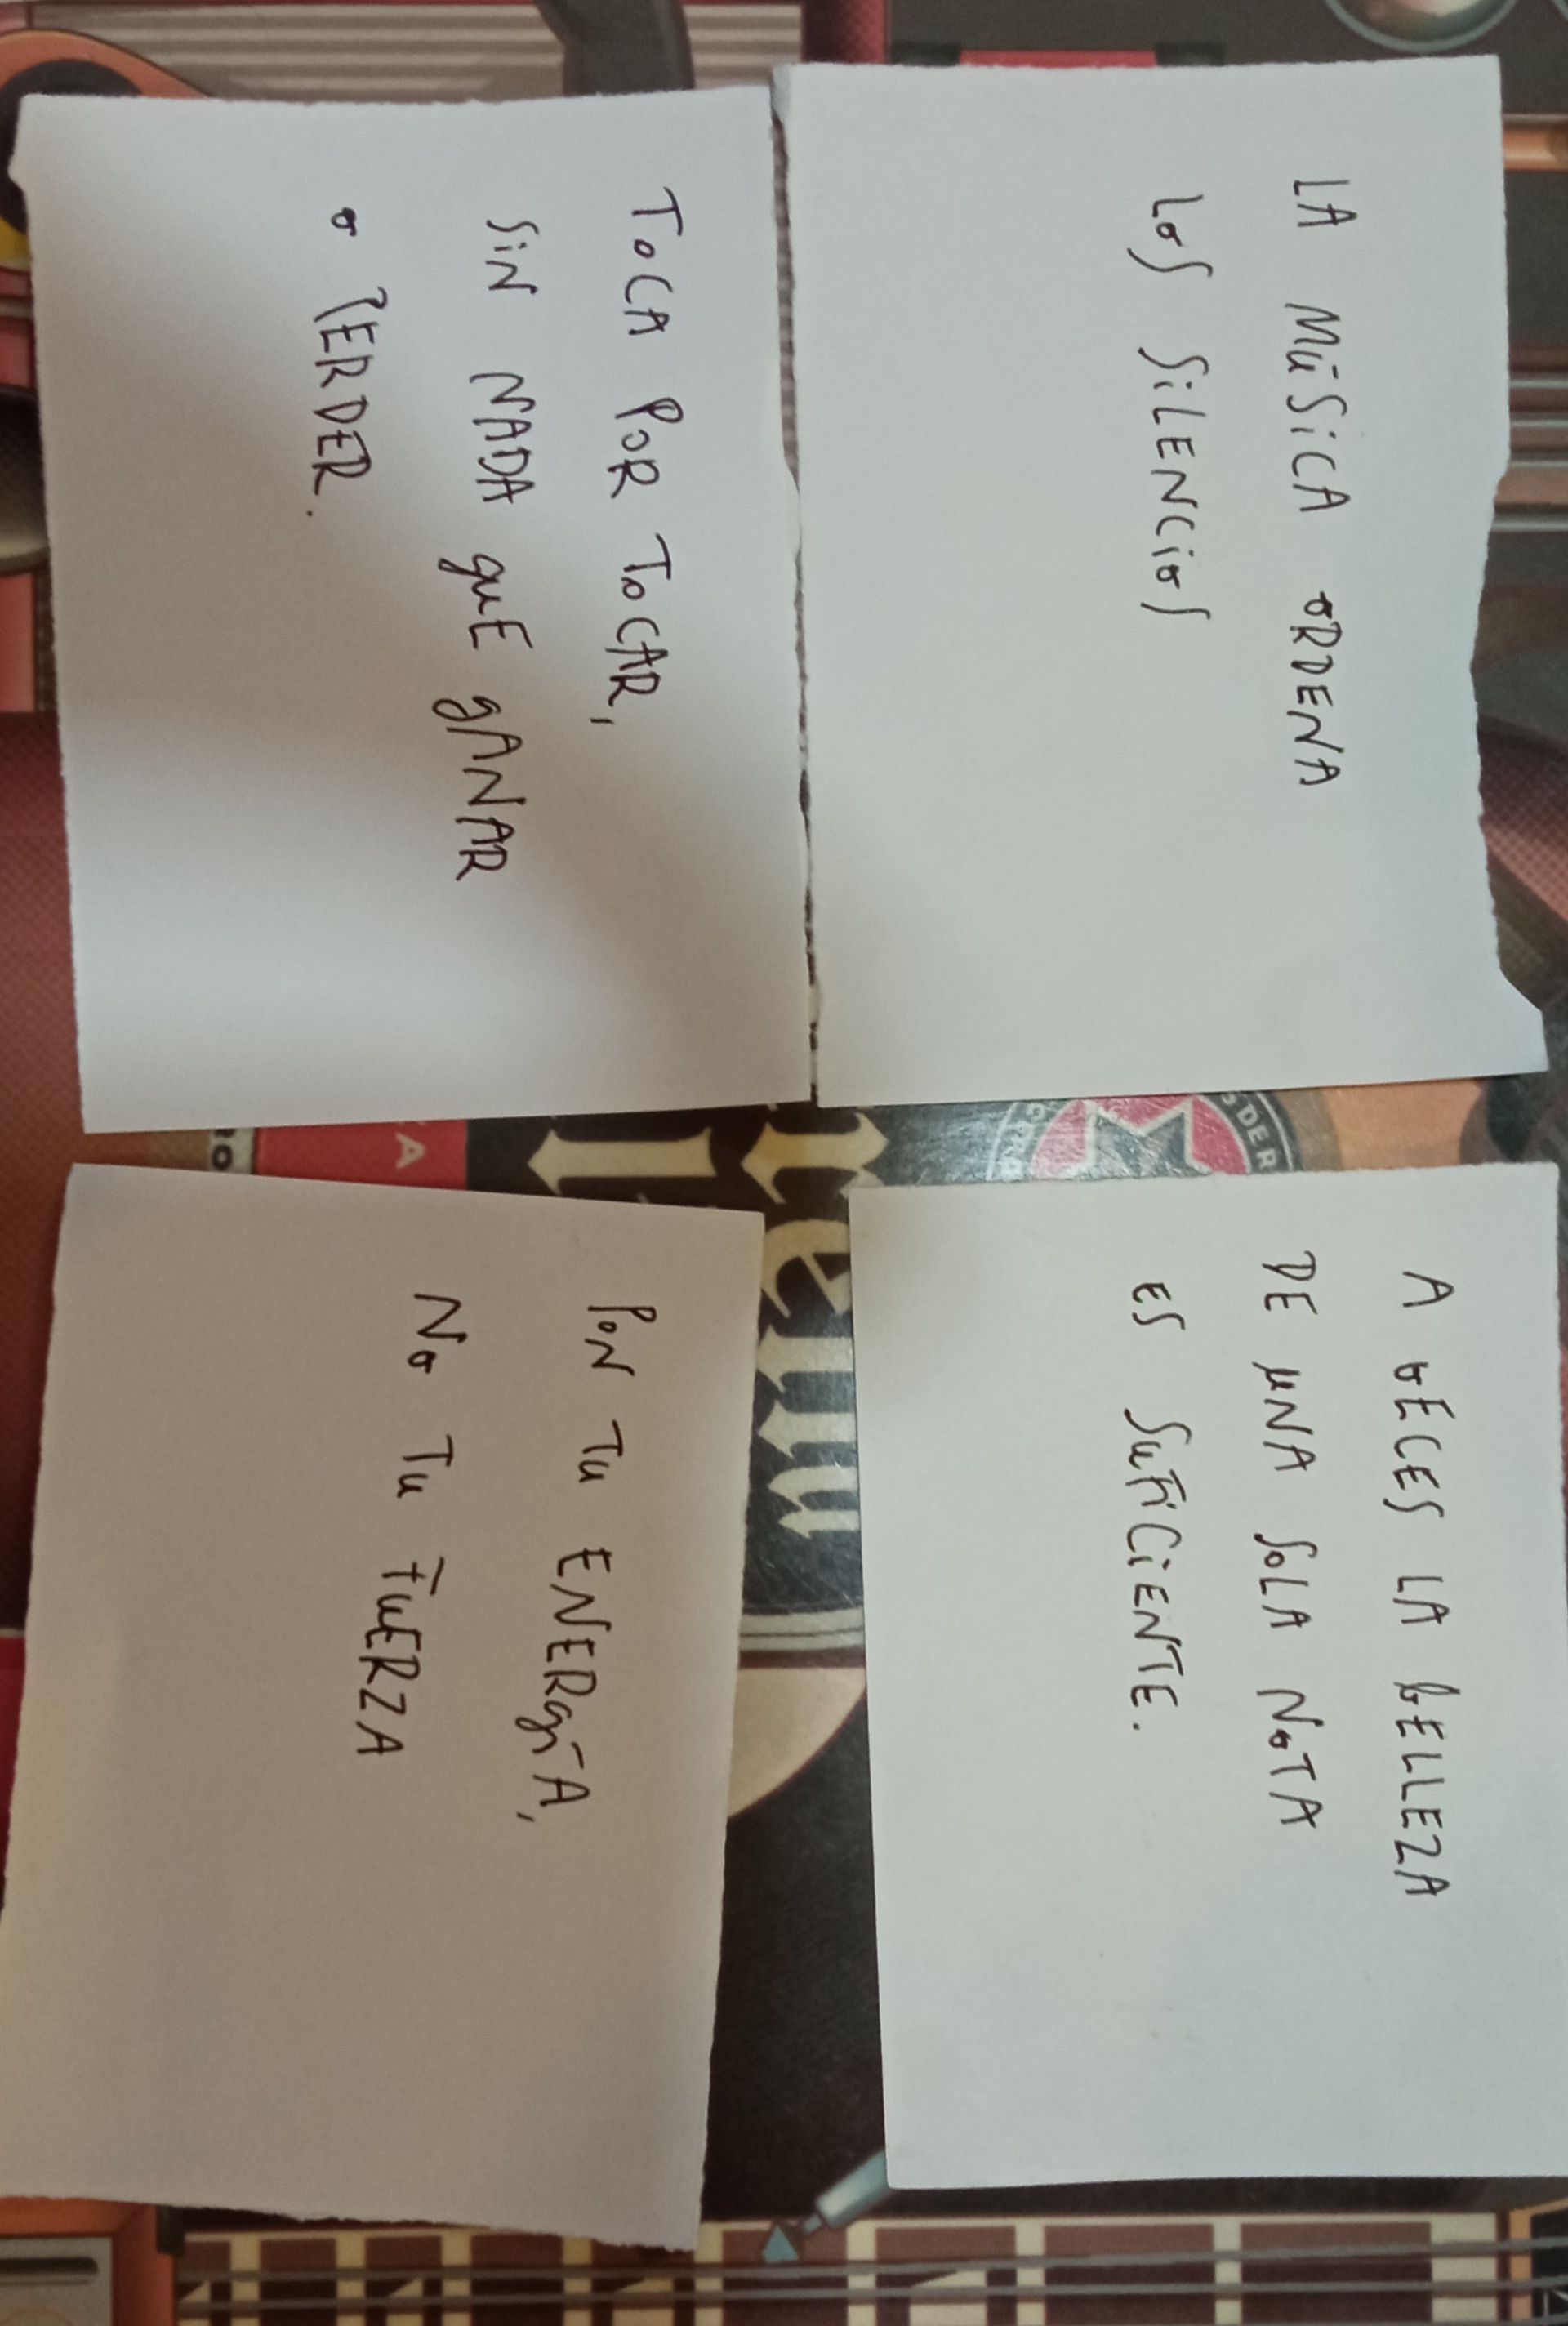 LA MÚSICA ORDENA
LOS SILENCIOS
A VECES LA BELLEZA
DE UNA SOLA NOTA
ES SUFICIENTE.
TOCA POR TOCAR,
SIN NADA QUE GANAR
O PERDER.
PON TU ENERGÍA,
NO TU FUERZA